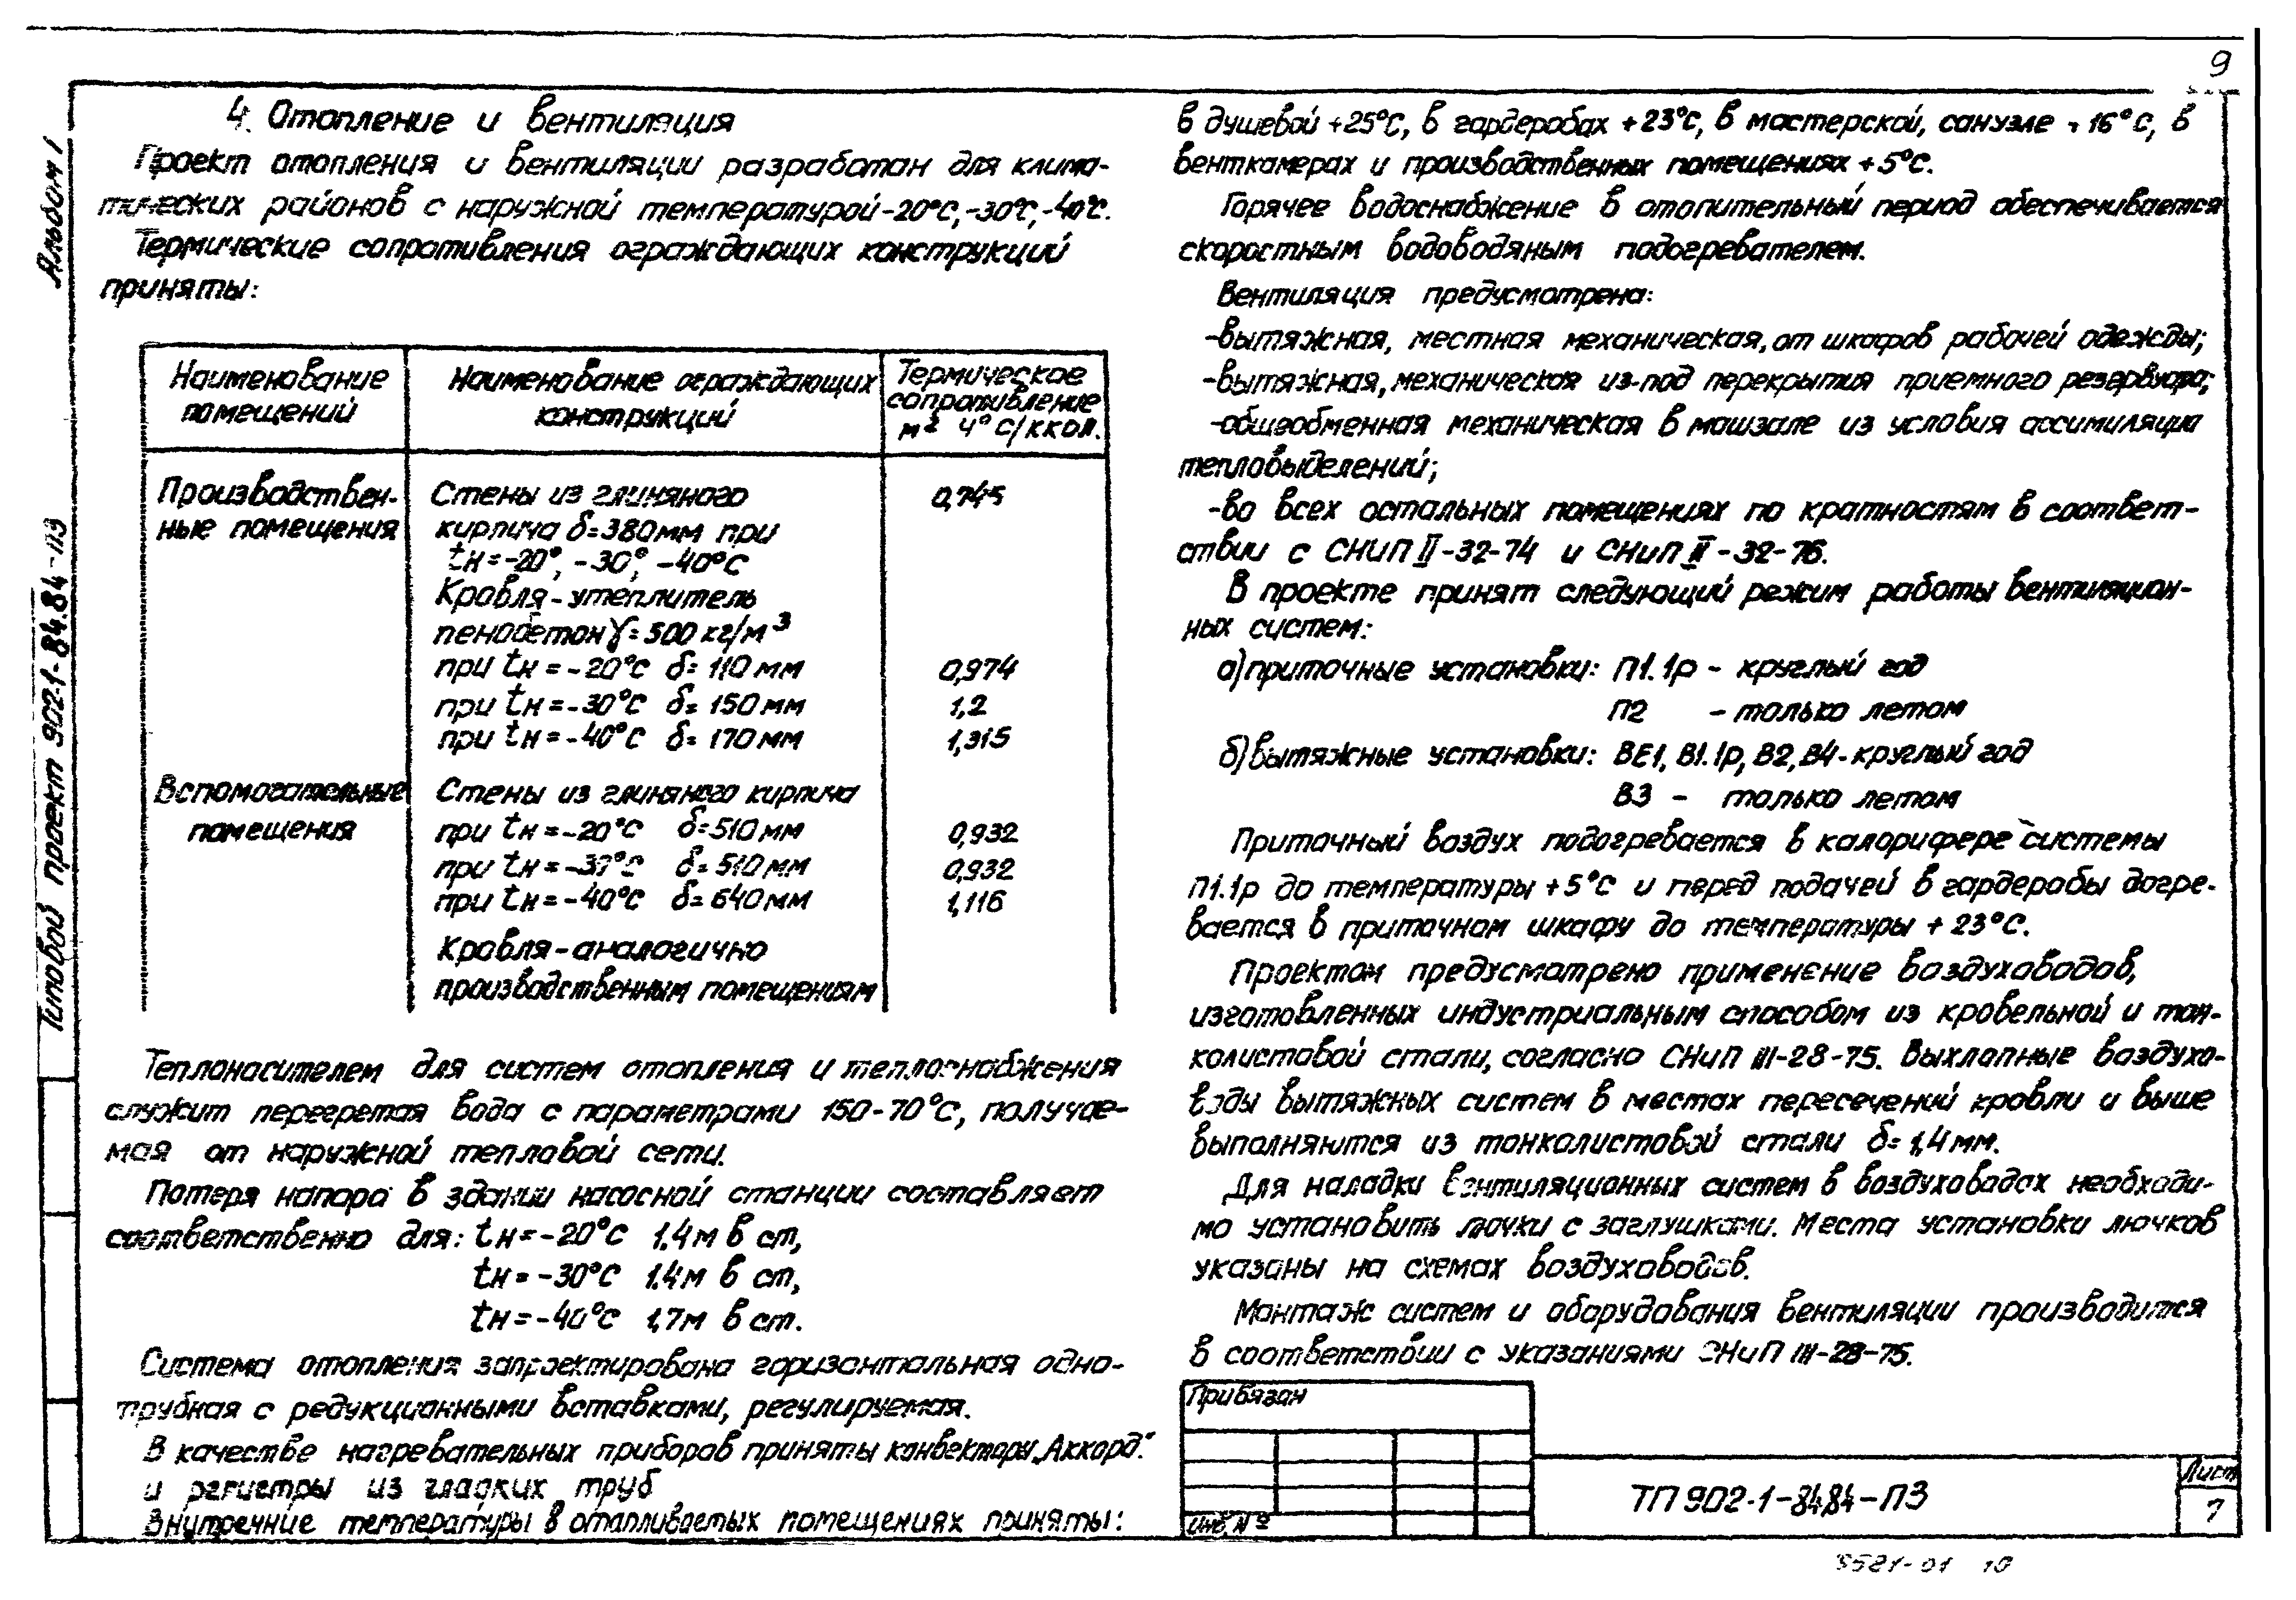 9
Альбом I
Типовой проект 902-1-84.84-ПЗ
4. Отопление и вентиляция
Проект отопления и вентиляции разработан для клима-
тических районов с наружной температурой -20°С, -30°С, -40°С.
Термические сопротивления ограждающих конструкций
приняты:
Наименование помещений
Наименование ограждающих конструкций
Термическое сопротивление м² ч°С/ккал.
Производствен-
ные помещения
Стены из глиняного 0,745
кирпича δ=380мм при
tн=-20°, -30°, -40°С
Кровля-утеплитель
пенобетон γ=500 кг/м³
при tн=-20°С δ=110мм 0,974
при tн=-30°С δ=150мм 1,2
при tн=-40°С δ=170мм 1,315
Вспомогательные
помещения
Стены из глиняного кирпича
при tн=-20°С δ=510мм 0,932
при tн=-30°С δ=510мм 0,932
при tн=-40°С δ=640мм 1,116
Кровля-аналогично
производственным помещениям
Теплоносителем для систем отопления и теплоснабжения
служит перегретая вода с параметрами 150-70°С, получае-
мая от наружной тепловой сети.
Потеря напора в здании насосной станции составляет
соответственно для: tн=-20°С 1.4м в ст,
tн=-30°С 1.4м в ст,
tн=-40°С 1,7м в ст.
Система отопления запроектирована горизонтальная одно-
трубная с редукционными вставками, регулируемая.
В качестве нагревательных приборов приняты конвекторы „Аккорд."
и регистры из гладких труб
Внутренние температуры в отапливаемых помещениях приняты:
в душевой +25°С, в гардеробах +23°С, в мастерской, санузле +16°С, в
венткамерах и производственных помещениях +5°С.
Горячее водоснабжение в отопительный период обеспечивается
скоростным водоводяным подогревателем.
Вентиляция предусмотрена:
-вытяжная, местная механическая, от шкафов рабочей одежды;
-вытяжная, механическая из-под перекрытия приемного резервуара;
-общеобменная механическая в машзале из условия ассимиляции
тепловыделений;
-во всех остальных помещениях по кратностям в соответ-
ствии с СНиП II-32-74 и СНиП II-32-76.
В проекте принят следующий режим работы вентиляцион-
ных систем:
а) приточные установки: П1.1р - круглый год
П2 - только летом
б) вытяжные установки: ВЕ1, В1.1р, В2, В4-круглый год
В3 - только летом
Приточный воздух подогревается в калорифере системы
П1.1р до температуры +5°С и перед подачей в гардеробы догре-
вается в приточном шкафу до температуры +23°С.
Проектом предусмотрено применение воздуховодов,
изготовленных индустриальным способом из кровельной и тон-
колистовой стали, согласно СНиП III-28-75. Выхлопные воздухо-
воды вытяжных систем в местах пересечений кровли и выше
выполняются из тонколистовой стали δ=1,4мм.
Для наладки вентиляционных систем в воздуховодах необходи-
мо установить лючки с заглушками. Места установки лючков
указаны на схемах воздуховодов.
Монтаж систем и оборудования вентиляции производится
в соответствии с указаниями СНиП III-28-75.
Привязан
Инв. №
ТП 902-1-84.84-ПЗ
Лист
7
10